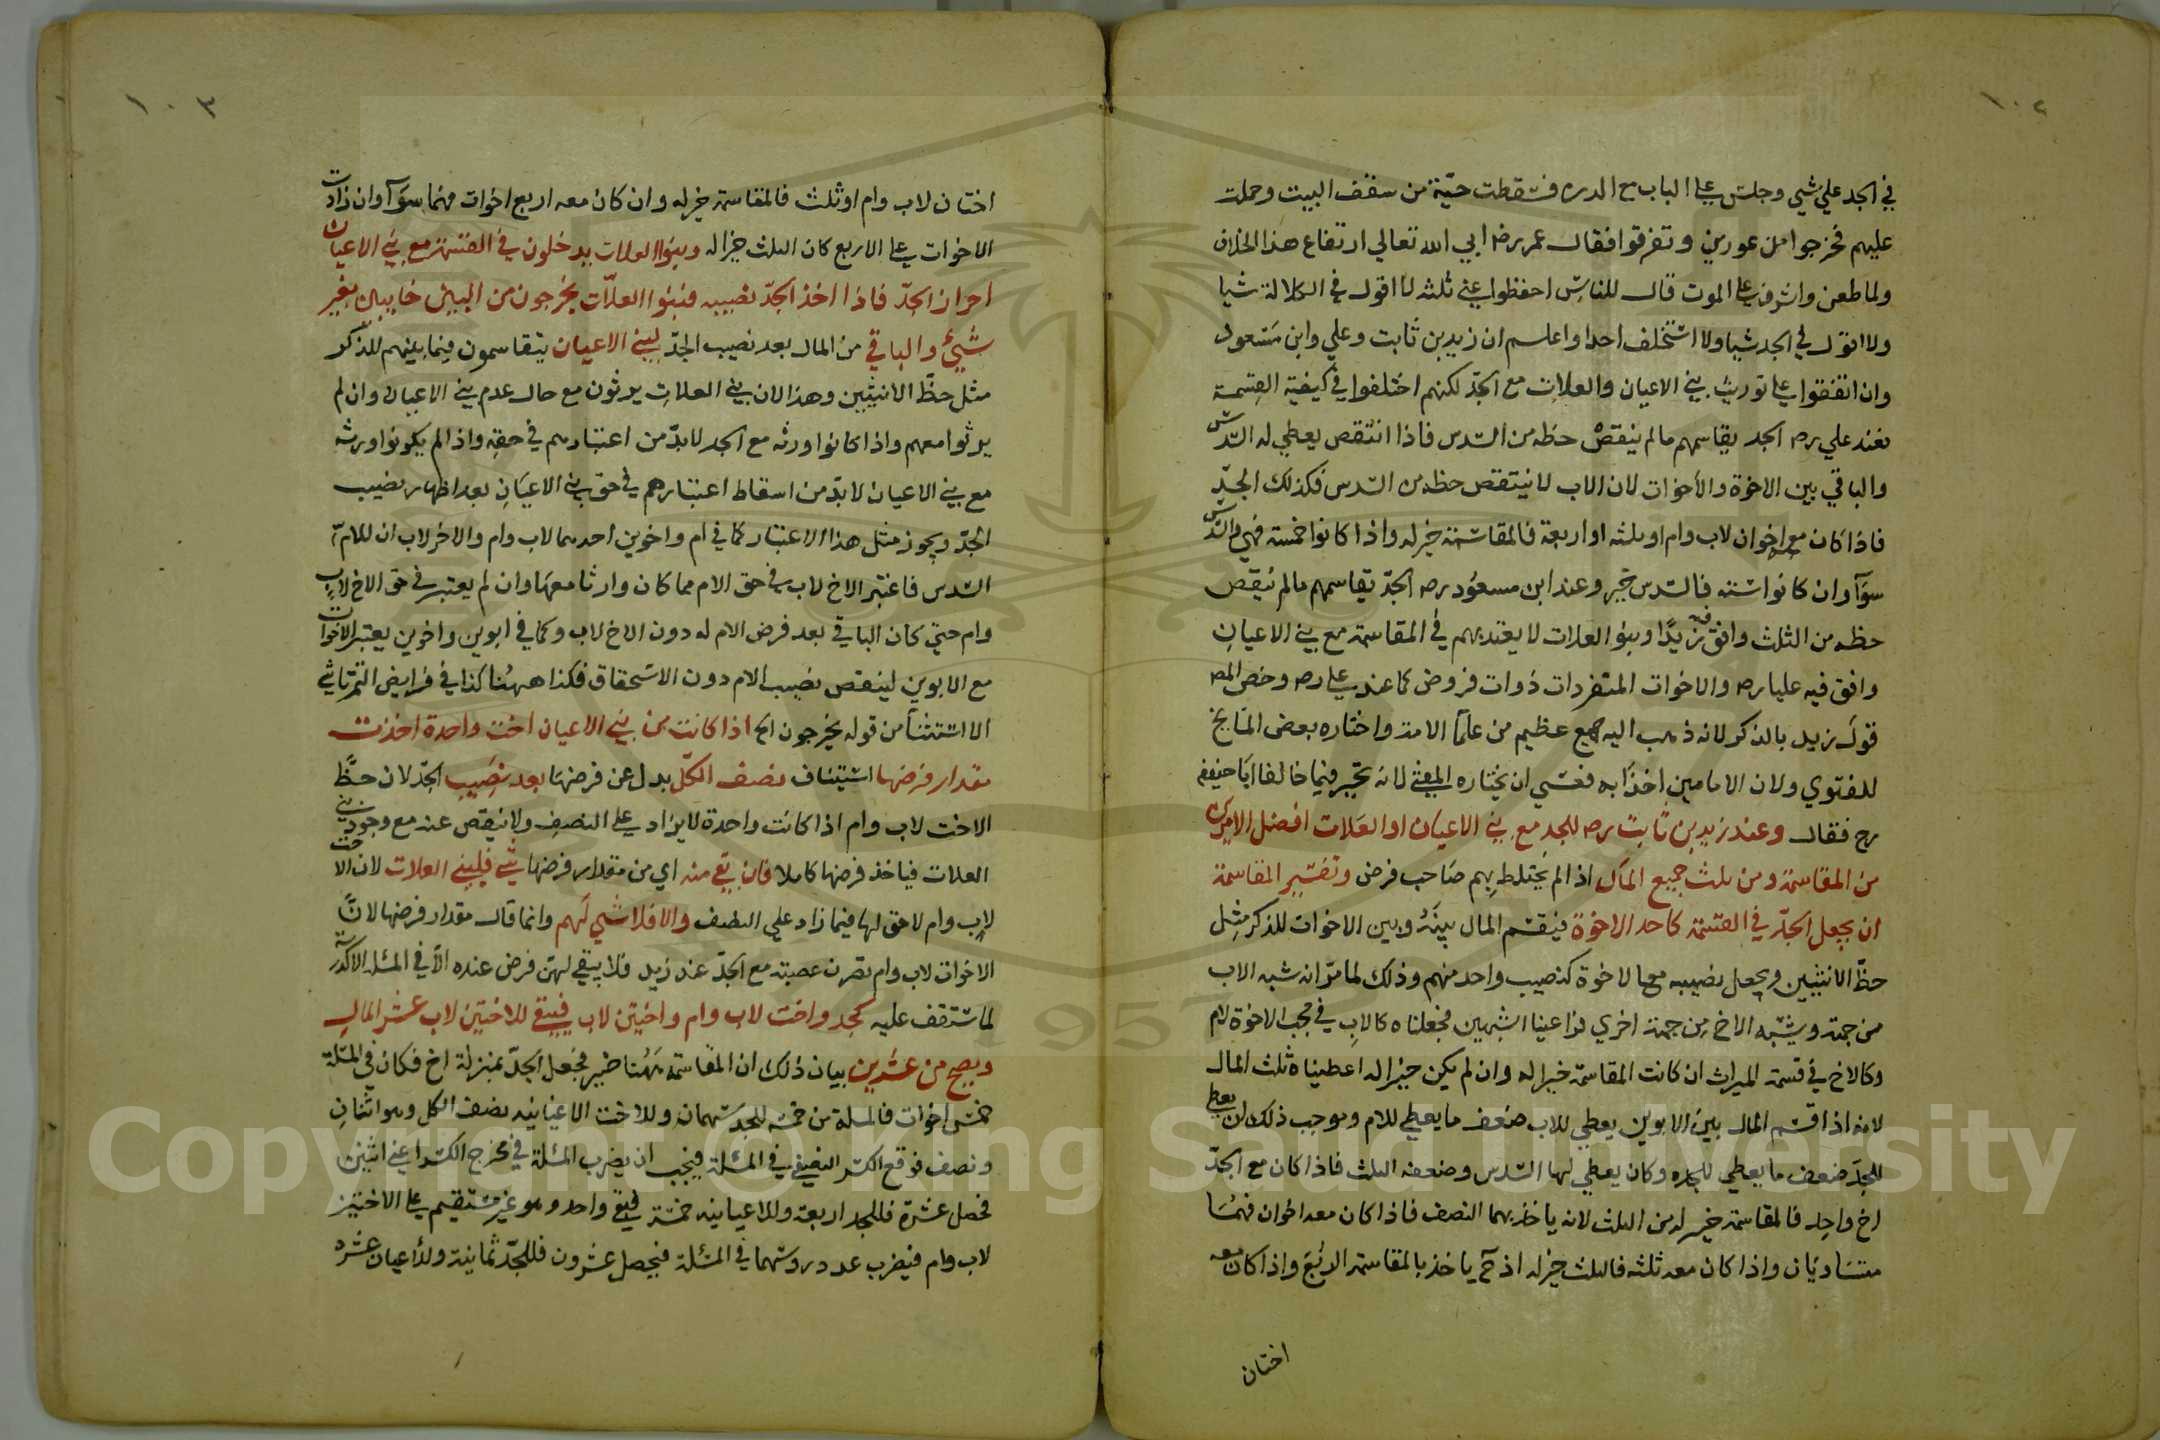 ١٠٢
في الجد علي شي وجلس علي الباب مع الدره فسقطت حيّة من سقف البيت وحملت
عليهم فخرجوا من عورين وتفرقوا فقال عمر رضه ابي الله تعالي ارتفاع هذا الخلاف
ولما طعن واشرف علي الموت قال للناس احفظوا عني ثلثه لا اقول في الكلالة شيا
ولا اقول في الجد شيا ولا استخلف احدا واعلم ان زيد بن ثابت وعلي وابن مسعود
وان اتفقوا علي توريث بني الاعيان والعلات مع الجدّ لكنهم اختلفوا في كيفية القسمة
فعند علي رضه الجد يقاسمهم مالم ينقص حظه من السّدس فاذا انتقص يعطي له السّدس
والباقي بين الاخوة والأخوات لان الاب لا ينتقص حظه من السّدس فكذلك الجدّ
فاذا كان معه اخوان لاب وام او ثلثه او اربعة فالمقاسمة خير له واذا كانوا خمسة فهي والسّدس
سوآ وان كانوا ستة فالسّدس خير وعند ابن مسعود رضه الجدّ يقاسمهم مالم ينقص
حظه من الثلث وافق فيه زيدًا وبنو العلات لا يعتد بهم في المقاسمة مع بني الاعيان
وافق فيه عليا رضه والاخوات المتفردات ذوات فروض كما عند علي رضه وخص المص
قول زيد بالذكر لانه ذهب اليه جمع عظيم من علمآ الامة واختاره بعض المشايخ
للفتوي ولان الامامين اخذا به فعسي ان يختاره المفتي لانه تخير فيما خالفا ابا حنيفة
رح فقال وعند زيد بن ثابت رضه للجد مع بني الاعيان او العلات افضل الامرين
من المقاسمة ومن ثلث جميع المال اذا لم يختلط بهم صاحب فرض وتفسير المقاسمة
ان يجعل الجدّ في القسمة كاحد الاخوة فيقسم المال بينه وبين الاخوات للذكر مثل
حظّ الانثيين ويجعل نصيبه مع الاخوة كنصيب واحد منهم وذلك لما مرّ انه شبه الاب
من جهة ويشبه الاخ من جهة اخري فراعينا الشبهين فجعلناه كالاب في حجب الاخوة لام
وكالاخ في قسمة الميراث ان كانت المقاسمة خيرا له وان لم يكن خيرا له اعطيناه ثلث المال
لانه اذا قسم المال بين الابوين يعطي للاب ضعف ما يعطي للام وموجب ذلك ان يعطي
للجدّ ضعف ما يعطي للجده وكان يعطي لها السّدس وضعفه الثلث فاذا كان مع الجدّ
اخ واحد فالمقاسمة خير له من الثلث لانه ياخذ بهما النصف فاذا كان معه اخوان فهما
متساويان واذا كان معه ثلثه فالثلث خير له اذ ح ياخذ بالمقاسمة الربع واذا كان معه
اختان
١٠٣
اختان لاب وام او ثلث فالمقاسمة خير له وان كان معه اربع اخوات فهما سوآ وان زادت
الاخوات علي الاربع كان الثلث خيرا له وبنو العلات يدخلون في القسمة مع بني الاعيان
اضرارا للجدّ فاذا اخذ الجدّ نصيبه فبنوا العلّات يخرجون من البين خايبين بغير
شيئ والباقي من المال بعد نصيب الجدّ لبني الاعيان يتقاسمون فيما بينهم للذكر
مثل حظّ الانثيين وهذا لان بني العلات يرثون مع حال عدم بني الاعيان وان لم
يرثوا معهم واذا كانوا ورثه مع الجد لا بدّ من اعتبارهم في حقه واذا لم يكونوا ورثه
مع بني الاعيان لا بدّ من اسقاط اعتبارهم في حق بني الاعيان بعد اظهار نصيب
الجدّ ويجوز مثل هذا الاعتبار كما في ام واخوين احدهما لاب وام والاخر لاب ان للامّ
السّدس فاعتبر الاخ لاب في حق الام مما كان وارثا معها وان لم يعتبر في حق الاخ لاب
وام حتي كان الباقي بعد فرض الام له دون الاخ لاب وكما في ابوين واخوين يعتبر الاخوات
مع الابوين لينقص نصيب الام دون الاستحقاق فكذا ههنا كذا في فرايض التمرتاشي
الا استثنآ من قوله يخرجون الخ اذا كانت من بني الاعيان اخت واحدة اخذت
مقدار فرضها استيناف نصف الكلّ بدل عن فرضها بعد نصيب الجدّ لان حظّ
الاخت لاب وام اذا كانت واحدة لا يزاد علي النصف ولا ينقص عنه مع وجود بني
العلات فياخذ فرضها كاملا فان بقي منه اي من مقدار فرضها شي فلبني العلات لان الاخت
لاب وام لا حق لها فيما زاد علي النصف والا فلا شي لهم وانما قال مقدار فرضها لانّ
الاخوات لاب وام تصرن عصبة مع الجدّ عند زيد فلا يبقي لهنّ فرض عنده الّا في المسئلة الاكدرية
لما ستقف عليه كجد واخت لاب وام واختين لاب فيبقي للاختين لاب عشر المال
ويصح من عشرين بيان ذلك ان المقاسمة ههنا خير فجعل الجدّ بمنزلة اخ فكان في المسئلة
خمس اخوات فالمسلة من خمسه للجد سهمان وللاخت الاعيانيه نصف الكل وهو اثنان
ونصف فوقع الكسر النصفي في المسئلة فيجب ان يضرب المسئلة في مخرج الكسر اعني اثنين
فحصل عشرة فللجد اربعة وللاعيانيه خمسة فبقي واحد وهو غير مستقيم علي الاختين
لاب وام فيضرب عدد روسهما في المسئلة فيحصل عشرون فللجدّ ثمانية وللأعيان عشرة
Copyright © King Saud University
1957